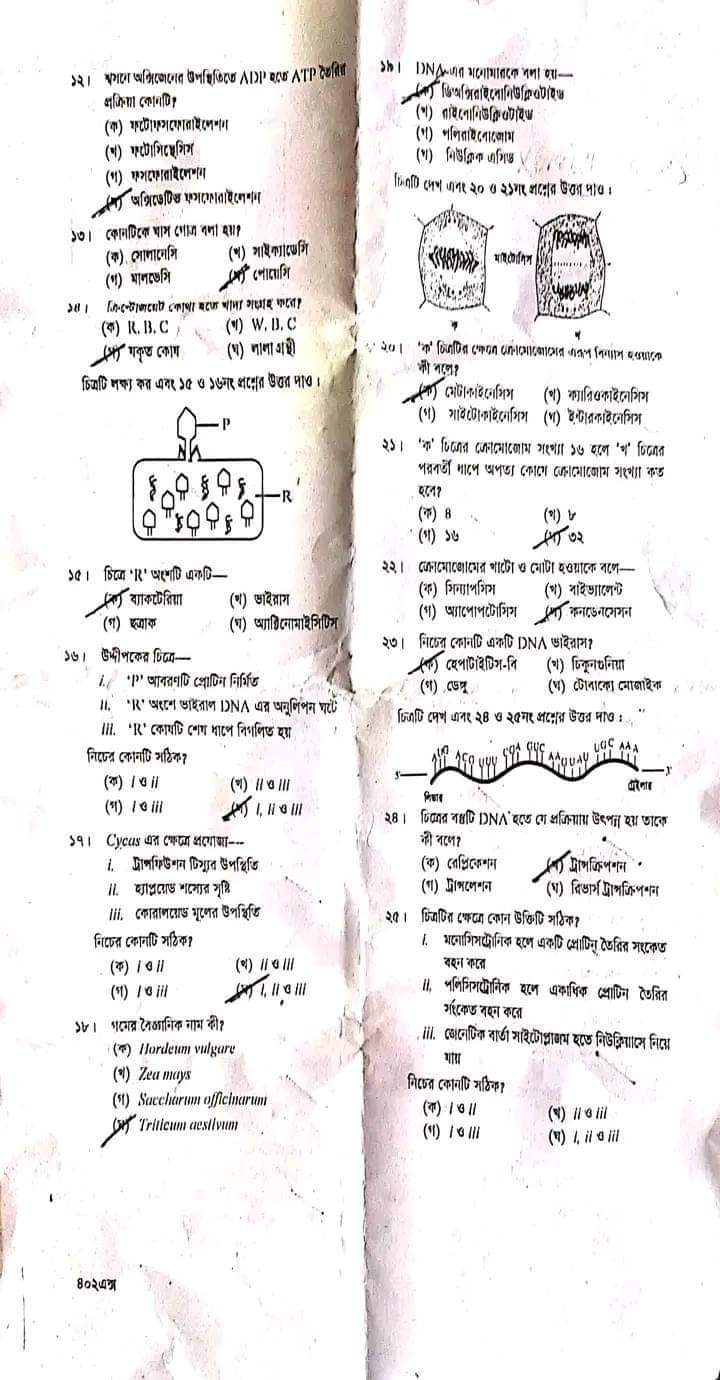 ১২। শ্বসনে অক্সিজেনের উপস্থিতিতে ADP হতে ATP তৈরির
প্রক্রিয়া কোনটি?
(ক) ফটোফসফোরাইলেশন
(খ) ফটোসিন্থেসিস
(গ) ফসফোরাইলেশন
(ঘ) অক্সিডেটিভ ফসফোরাইলেশন
১৩। কোনটিকে ঘাস গোত্র বলা হয়?
(ক) সোলানেসি (খ) সাইক্যাডেসি
(গ) মালভেসি (ঘ) পোয়েসি
১৪। কোথা হতে খাদ্য সংগ্রহ করে?
(ক) R.B.C (খ) W.B.C
(গ) যকৃত কোষ (ঘ) লালা গ্রন্থী
চিত্রটি লক্ষ্য কর এবং ১৫ ও ১৬নং প্রশ্নের উত্তর দাও।
P
R
১৫। চিত্রে 'R' অংশটি একটি—
(ক) ব্যাকটেরিয়া (খ) ভাইরাস
(গ) ছত্রাক (ঘ) অ্যাক্টিনোমাইসিটিস
১৬। উদ্দীপকের চিত্রে—
i. 'P' আবরণটি প্রোটিন নির্মিত
ii. 'R' অংশে ভাইরাল DNA এর অনুলিপন ঘটে
iii. 'R' কোষটি শেষ ধাপে বিগলিত হয়
নিচের কোনটি সঠিক?
(ক) i ও ii (খ) ii ও iii
(গ) i ও iii (ঘ) i, ii ও iii
১৭। Cycas এর ক্ষেত্রে প্রযোজ্য—
i. ট্রান্সফিউশন টিস্যুর উপস্থিতি
ii. হ্যাপ্লয়েড শস্যের সৃষ্টি
iii. কোরালয়েড মূলের উপস্থিতি
নিচের কোনটি সঠিক?
(ক) i ও ii (খ) ii ও iii
(গ) i ও iii (ঘ) i, ii ও iii
১৮। গমের বৈজ্ঞানিক নাম কী?
(ক) Hordeum vulgare
(খ) Zea mays
(গ) Saccharum officinarum
(ঘ) Triticum aestivum
৪০২এক্স
১৯। DNA-এর মনোমারকে বলা হয়—
(ক) ডিঅক্সিরাইবোনিউক্লিওটাইড
(খ) রাইবোনিউক্লিওটাইড
(গ) পলিরাইবোজোম
(ঘ) নিউক্লিক এসিড
চিত্রটি দেখ এবং ২০ ও ২১নং প্রশ্নের উত্তর দাও।
মাইটোসিস
ক খ
২০। 'ক' চিত্রটির ক্ষেত্রে ক্রোমোজোমের এরূপ বিন্যাস হওয়াকে
কী বলে?
(ক) মেটাকাইনেসিস (খ) ক্যারিওকাইনেসিস
(গ) সাইটোকাইনেসিস (ঘ) ইন্টারকাইনেসিস
২১। 'ক' চিত্রের ক্রোমোজোম সংখ্যা ১৬ হলে 'খ' চিত্রের
পরবর্তী ধাপে অপত্য কোষে ক্রোমোজোম সংখ্যা কত
হবে?
(ক) ৪ (খ) ৮
(গ) ১৬ (ঘ) ৩২
২২। ক্রোমোজোমের খাটো ও মোটা হওয়াকে বলে—
(ক) সিন্যাপসিস (খ) বাইভ্যালেন্ট
(গ) অ্যাপোপটোসিস (ঘ) কনডেনসেসন
২৩। নিচের কোনটি একটি DNA ভাইরাস?
(ক) হেপাটাইটিস-বি (খ) চিকুনগুনিয়া
(গ) ডেঙ্গু (ঘ) টোবাকো মোজাইক
চিত্রটি দেখ এবং ২৪ ও ২৫নং প্রশ্নের উত্তর দাও:
AUG ACG UUU CGA GUC AAGUAU UGC AAA
5' 3'
লিডার ট্রেইলার
২৪। চিত্রের বস্তুটি DNA হতে যে প্রক্রিয়ায় উৎপন্ন হয় তাকে
কী বলে?
(ক) রেপ্লিকেশন (খ) ট্রান্সক্রিপশন
(গ) ট্রান্সলেশন (ঘ) রিভার্স ট্রান্সক্রিপশন
২৫। চিত্রটির ক্ষেত্রে কোন উক্তিটি সঠিক?
i. মনোসিসট্রোনিক হলে একটি প্রোটিন তৈরির সংকেত
বহন করে
ii. পলিসিসট্রোনিক হলে একাধিক প্রোটিন তৈরির
সংকেত বহন করে
iii. জেনেটিক বার্তা সাইটোপ্লাজম হতে নিউক্লিয়াসে নিয়ে
যায়
নিচের কোনটি সঠিক?
(ক) i ও ii (খ) ii ও iii
(গ) i ও iii (ঘ) i, ii ও iii